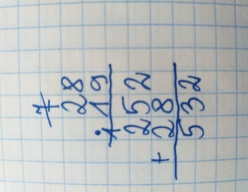 7
28
·19
252
+28
532